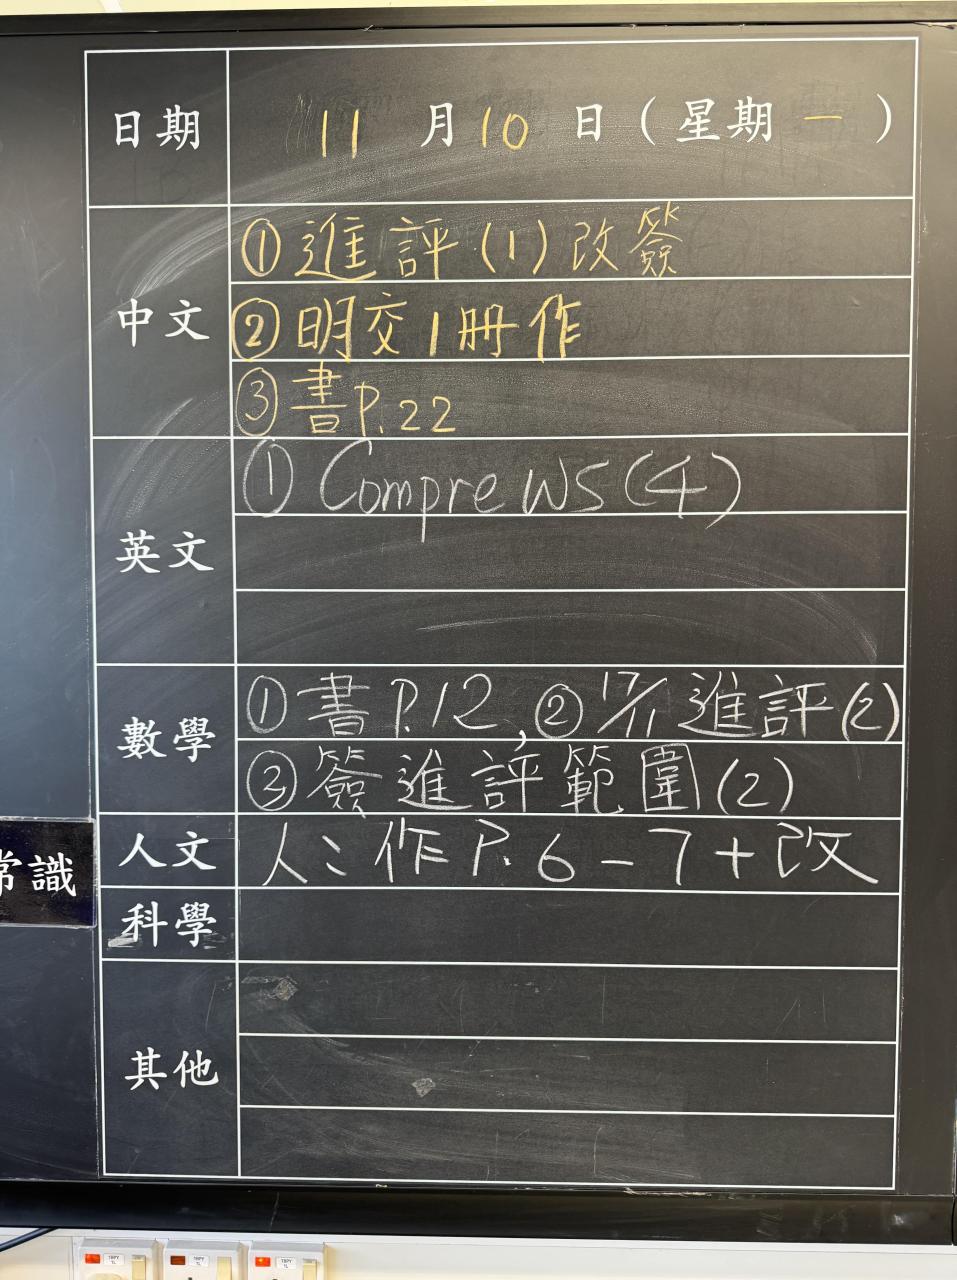 日期 11月10日(星期一)
中文 ①進評(1)改簽
②明交1冊作
③書P.22
英文 ①Compre WS(4)
數學 ①書P.12, ②17/11進評(2)
③簽進評範圍(2)
人文 人:作P.6-7+改
常識
科學
其他